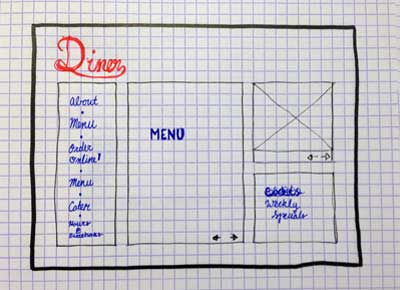 Diner
About
Menu
Order
Online!
Menu
Cater
Hours
&
Directions
MENU
Weekly
Specials